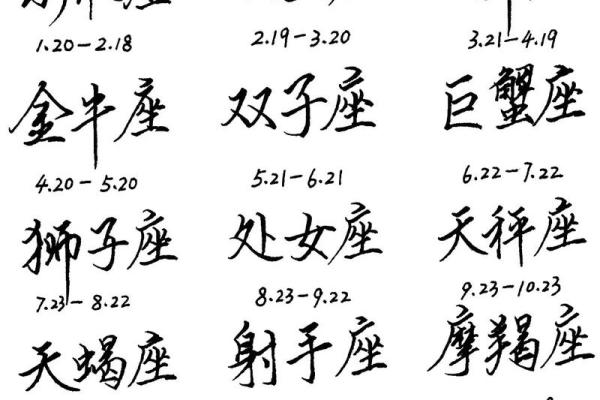 1.20-2.18 2.19-3.20 3.21-4.19
金牛座 双子座 巨蟹座
4.20-5.20 5.21-6.21 6.22-7.22
狮子座 处女座 天秤座
7.23-8.22 8.23-9.22 9.23-10.23
天蝎座 射手座 摩羯座